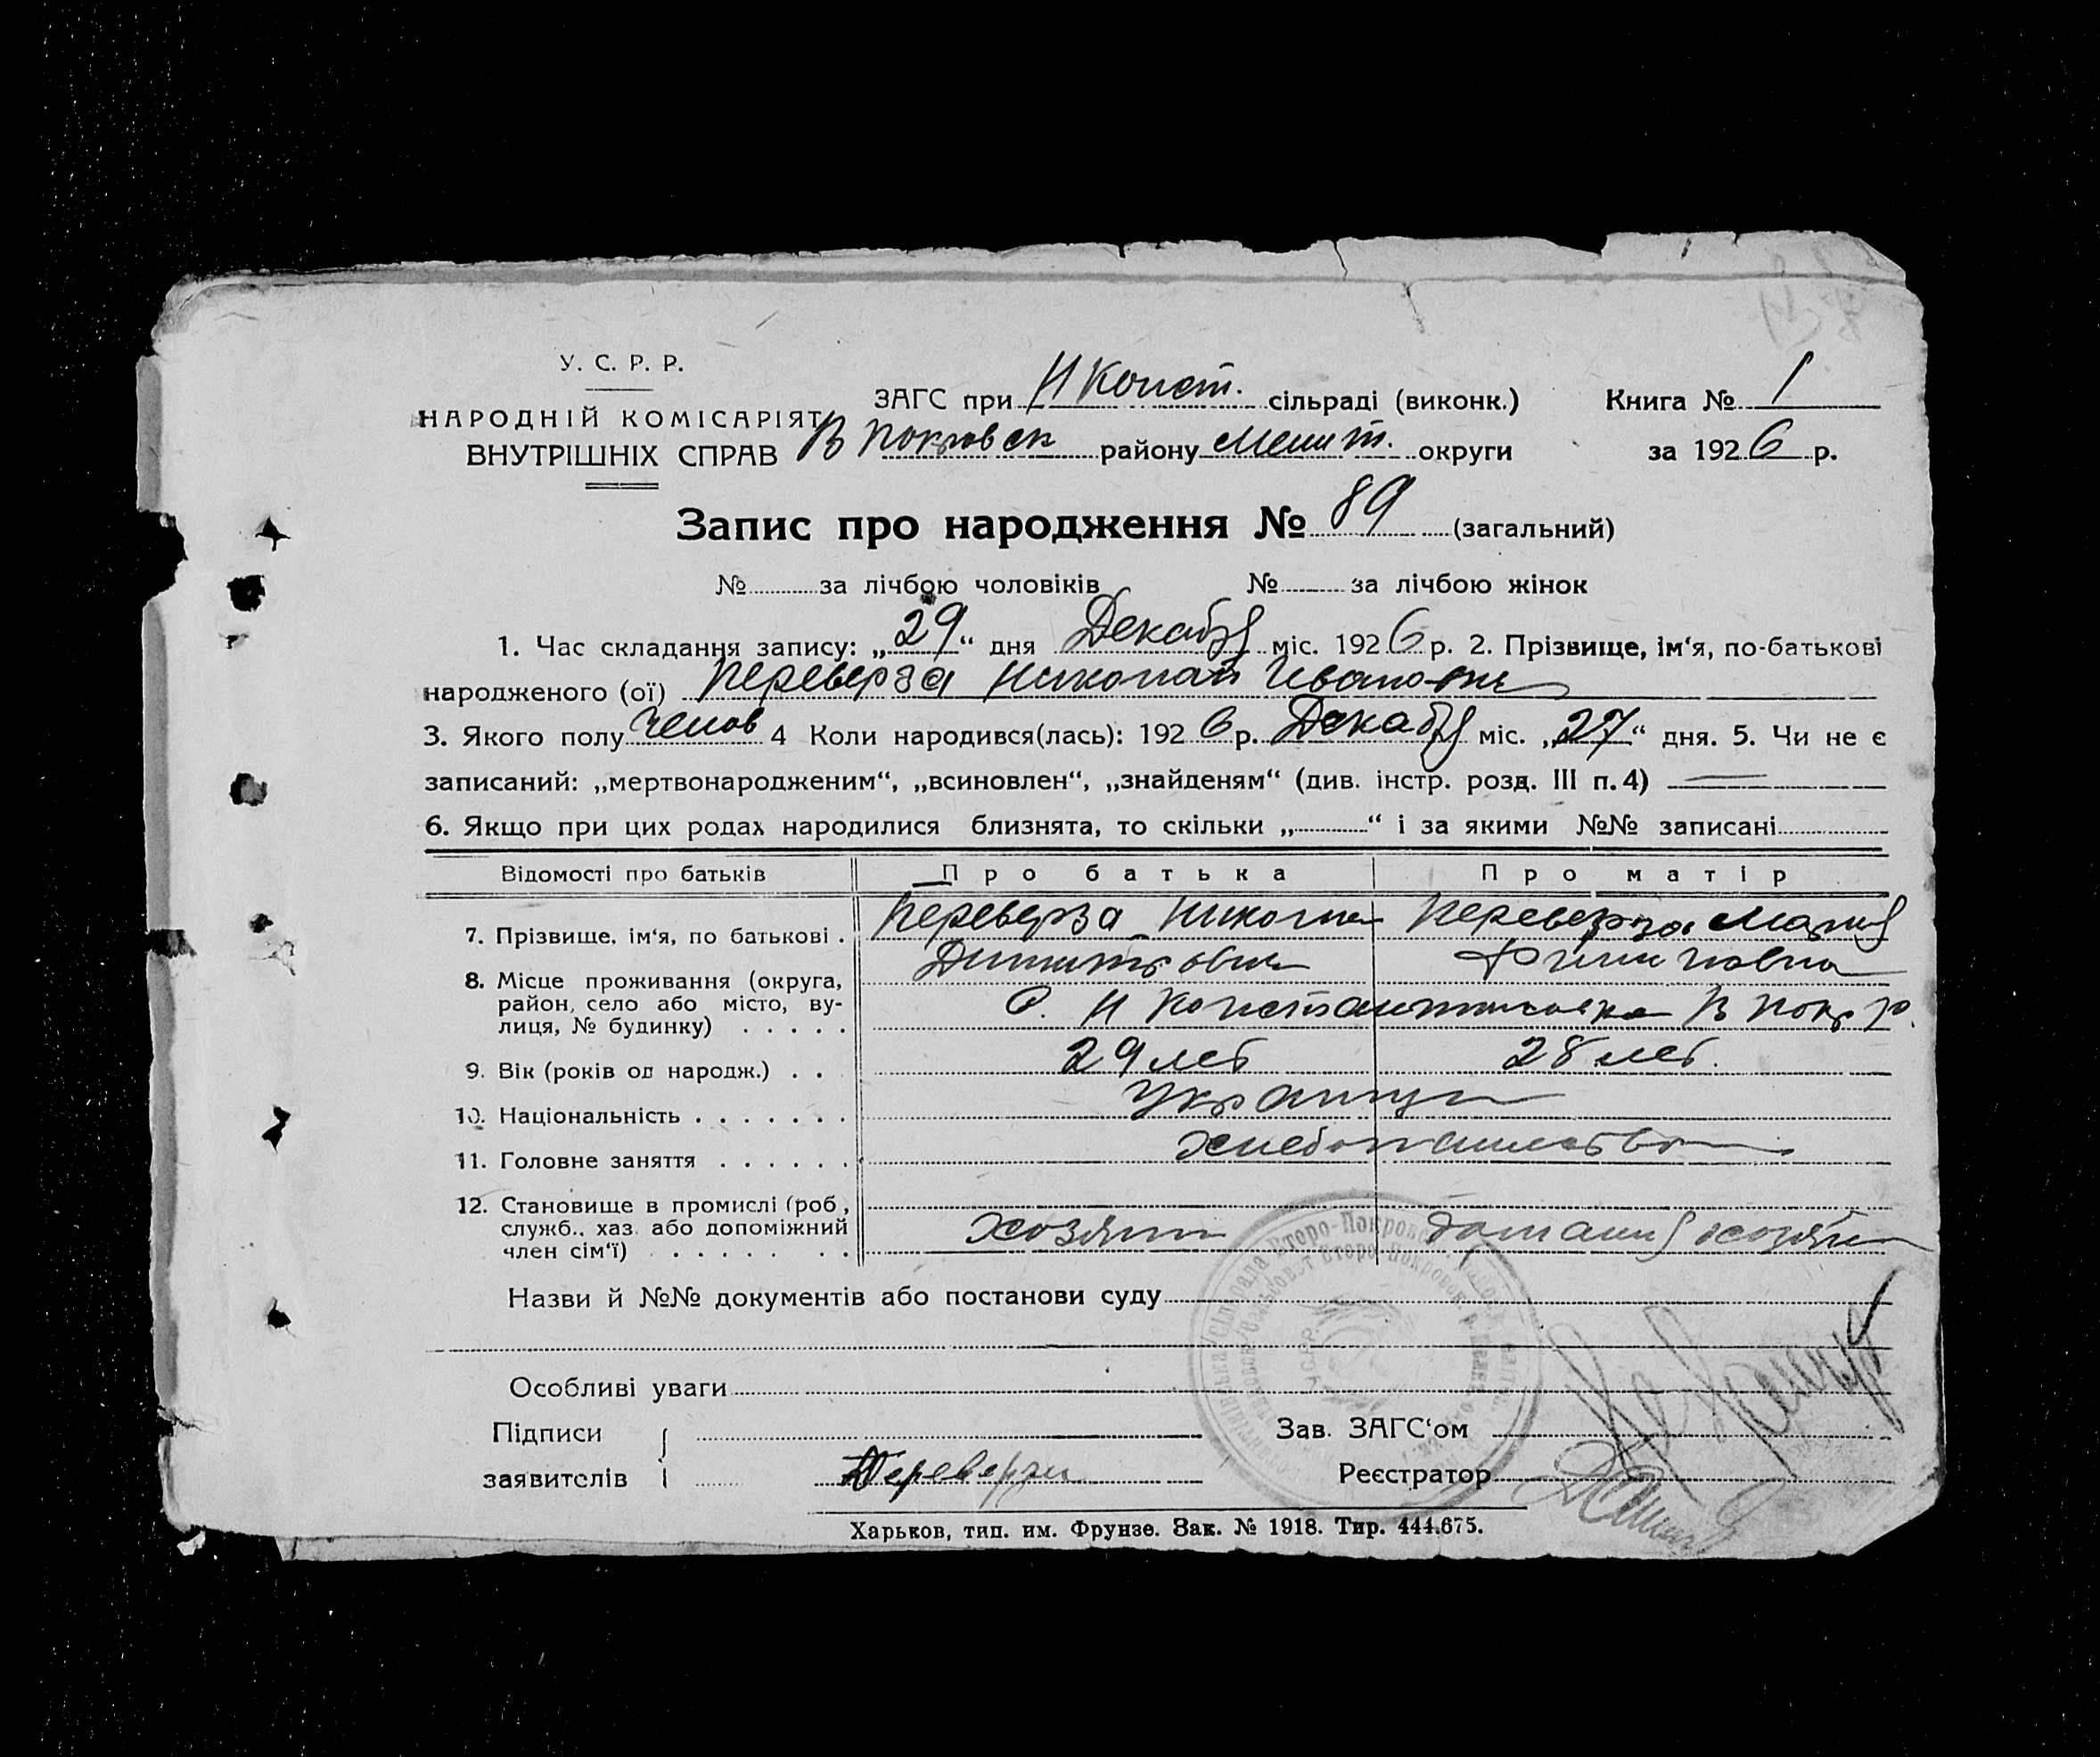 У. С. Р. Р.
НАРОДНІЙ КОМІСАРІЯТ
ВНУТРІШНІХ СПРАВ
ЗАГС при Н Конст. сільраді (виконк.)
В Покровск району Мелит. округи
Книга № 1
за 1926 р.
Запис про народження № 89 (загальний)
№ за лічбою чоловіків № за лічбою жінок
1. Час складання запису: „29“ дня Декабря міс. 1926 р. 2. Прізвище, ім‘я, по-батькові
народженого (ої) Переверза Николай Иванович
3. Якого полу 4 Коли народився(лась): 1926 р. Декабря міс. „27“ дня. 5. Чи не є
записаний: „мертвонародженим“, „всиновлен“, „знайденям“ (див. інстр. розд. III п. 4)
6. Якщо при цих родах народилися близнята, то скільки „ “ і за якими №№ записані
Відомості про батьків Про батька Про матір
7. Прізвище, ім‘я, по батькові . Переверза Переверза Мария
8. Місце проживання (округа,
район, село або місто, ву-
лиця, № будинку) . . . . . С. Н Константиновка В Покр р.
9. Вік (років од народж.) . . 29 лет 28 лет.
10. Національність . . . . . . . Украинцы
11. Головне заняття . . . . . . хлебопашество
12. Становище в промислі (роб,
служб., хаз. або допоміжний
член сім‘ї) . . . . . . . хозяин домашня хозяй
Назви й №№ документів або постанови суду
Особливі уваги
Підписи
заявителів Переверзи
Зав. ЗАГС‘ом
Реєстратор
Харьков, тип. им. Фрунзе. Зак. № 1918. Тир. 444.675.